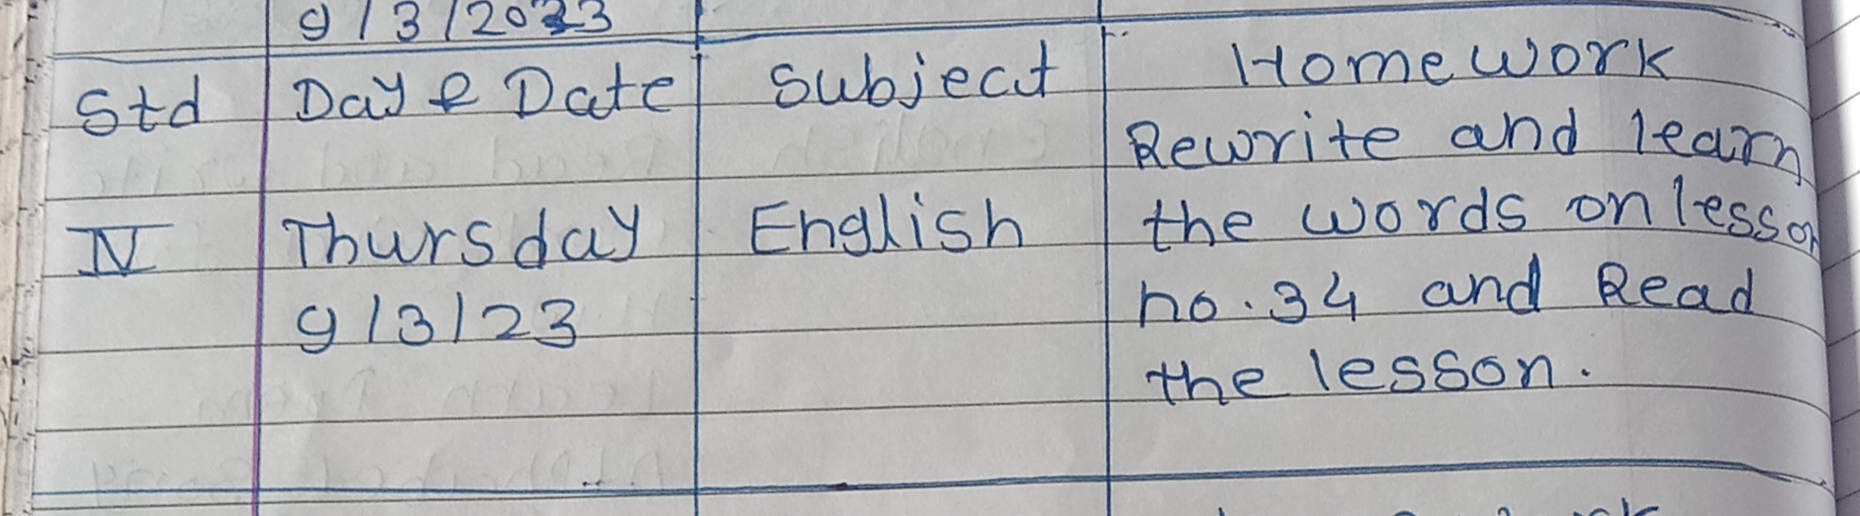 9/3/2023
Std Day & Date Subject Homework
Rewrite and learn
IV Thursday English the words on lesson
9/3/23 no.34 and Read
the lesson.